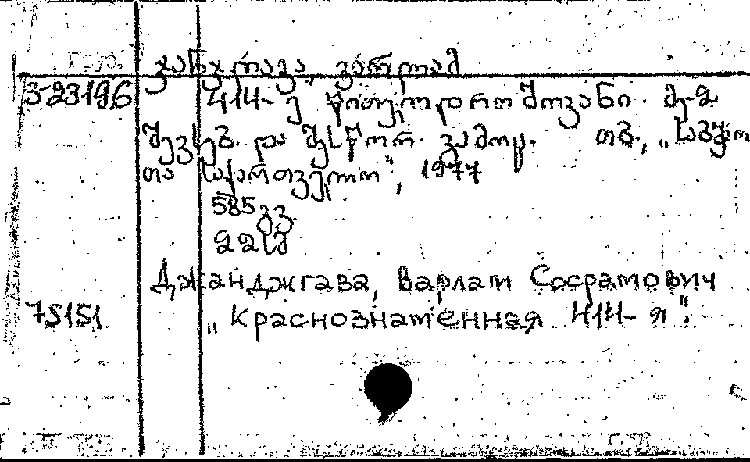 ჯანჯღავა, ვარლამ
323196 414-ე წითელდროშოვანი. მე-2
შევსებ. და შესწორ. გამოც. თბ., „საბჭო
თა საქართველო", 1977
585 გვ.
22 სმ
Джанджгава, Варлам Сосрамович
75151 „Краснознаменная 414-я".